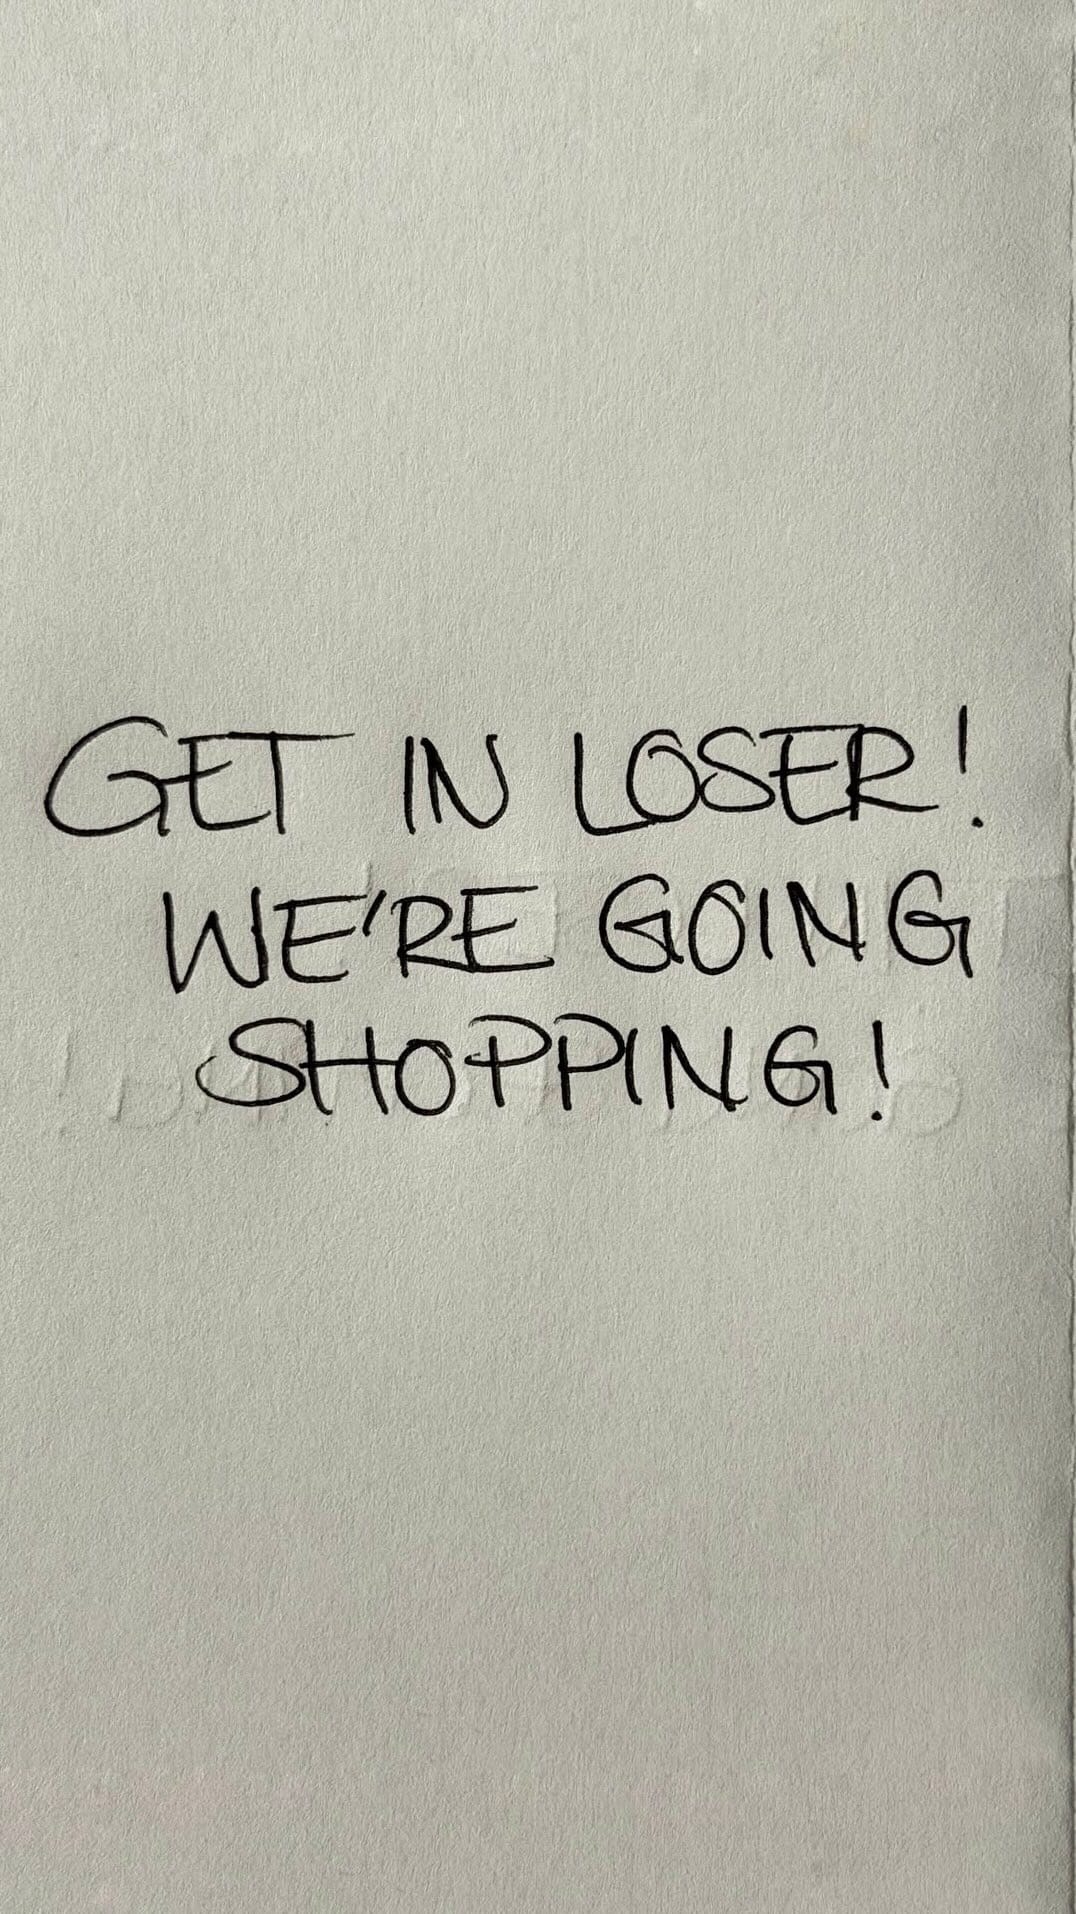 GET IN LOSER!
WE'RE GOING
SHOPPING!